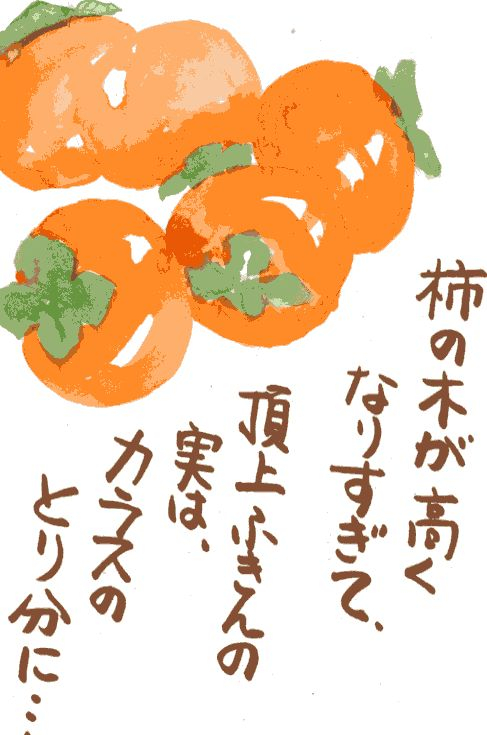 柿の木が高く
なりすぎて、
頂上ふきんの
実は、
カラスの
とり分に…